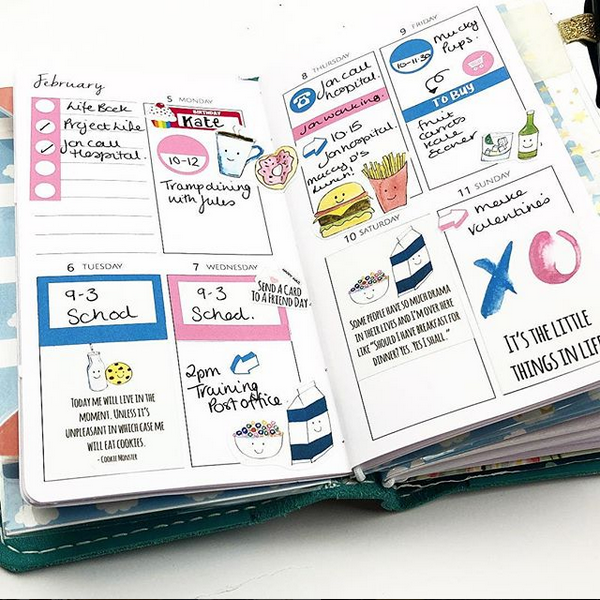 February
Life Book
Project Life
Jon call
Hospital.
5 MONDAY
BIRTHDAY
Kate
10-12
Trampolining
with Jules
6 TUESDAY
9-3
School
TODAY ME WILL LIVE IN THE
MOMENT. UNLESS IT'S
UNPLEASANT IN WHICH CASE ME
WILL EAT COOKIES.
- COOKIE MONSTER
7 WEDNESDAY
SEND A CARD
TO A FRIEND DAY
9-3
School.
2pm
Training
Post office
8 THURSDAY
Jon call
hospital.
Jon working.
10-15
Jon hospital.
maccy D's
Lunch!
9 FRIDAY
10-11:30
Mucky
Pups.
TO BUY
Fruit
carrots
kale
Ecover
10 SATURDAY
SOME PEOPLE HAVE SO MUCH DRAMA
IN THEIR LIVES AND I'M OVER HERE
LIKE "SHOULD I HAVE BREAKFAST FOR
DINNER? YES. YES I SHALL."
11 SUNDAY
make
valentines
X O
IT'S THE LITTLE
THINGS IN LIFE